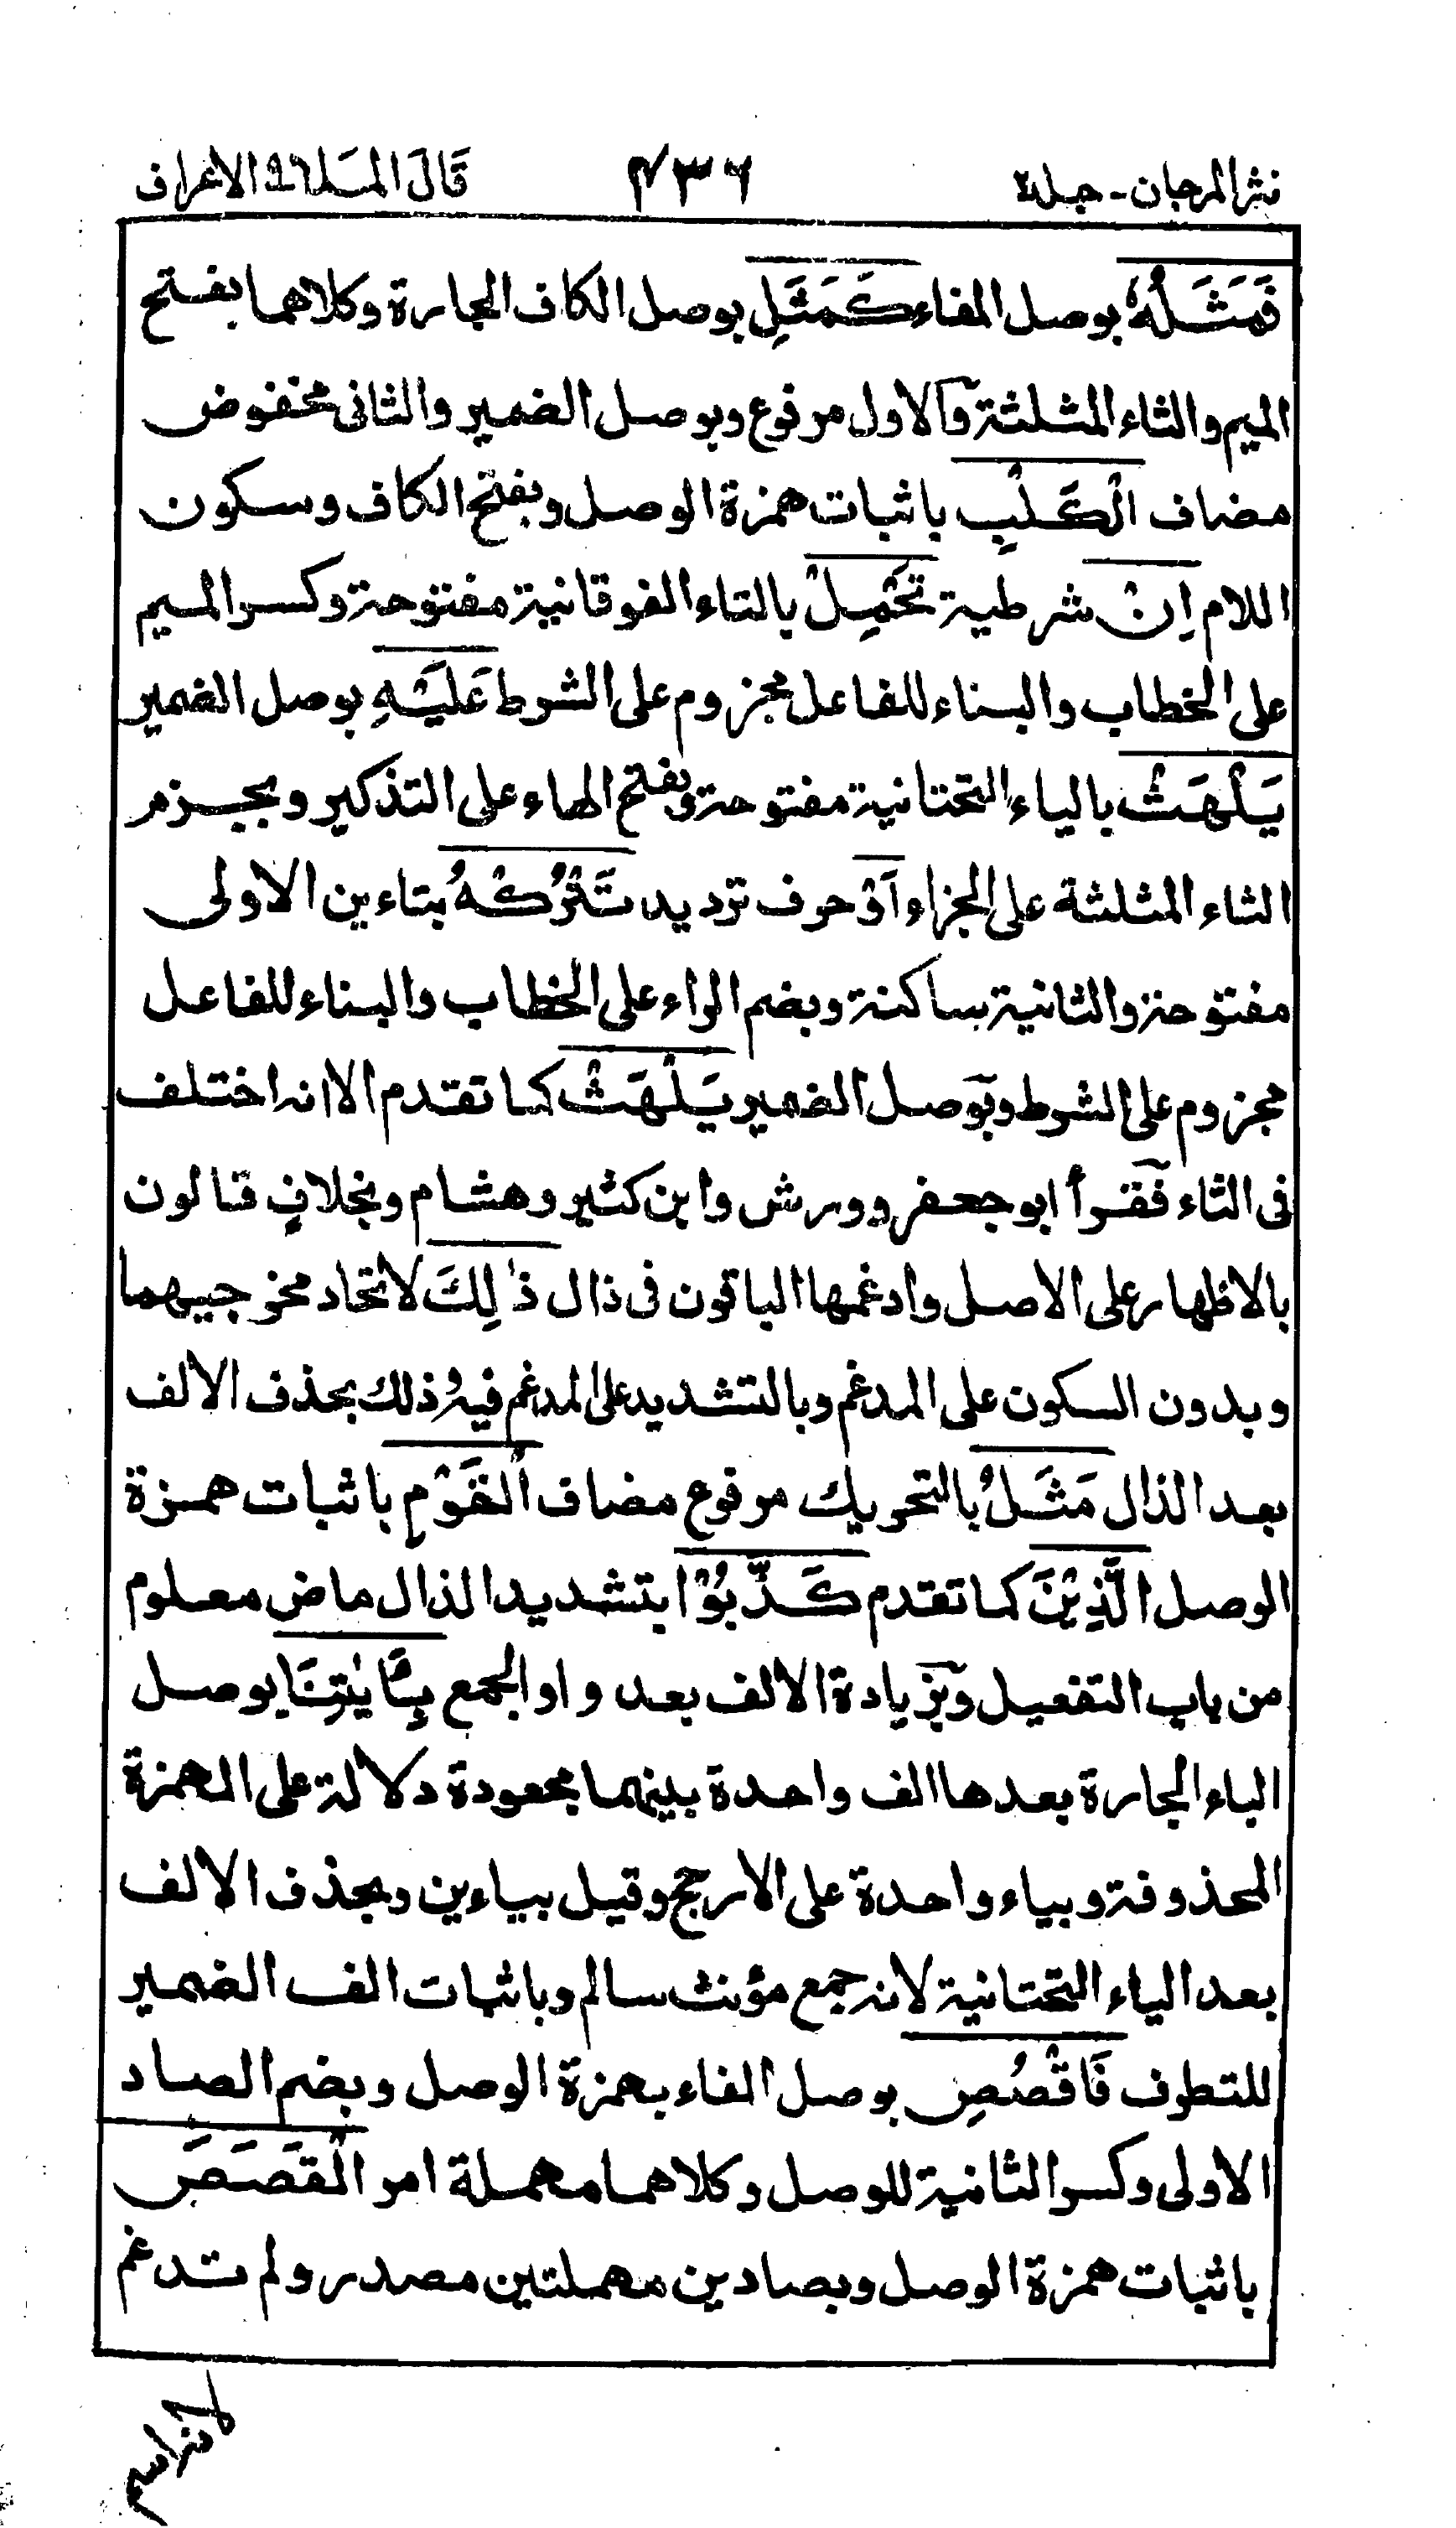 نثر المرجان - جلد٢ ٧٣٦ قَالَ المَلا٩ الاعراف
فَمَثَلُهٗ بوصل الفاء كَمَثَلِ بوصل الكاف الجارة وكلاهما بفتح
الميم والثاء المثلثة وَالاول مرفوع وبوصل الضمير والثانى مخفوض
مضاف الْكَلْبِ باثبات همزة الوصل وبفتح الكاف وسكون
اللام اِنْ شرطية تَحْمِلْ بالتاء الفوقانية مفتوحة وكسر الميم
على الخطاب والبناء للفاعل مجزوم على الشرط عَلَيْهِ بوصل الضمير
يَلْهَثْ بالياء التحتانية مفتوحة وبفتح الهاء على التذكير وبجزم
الثاء المثلثة على الجزاء اَوْ حرف ترديد تَتْرُكْهُ بتاءين الاولى
مفتوحة والثانية ساكنة وبضم الراء على الخطاب والبناء للفاعل
مجزوم على الشرط وبوصل الضمير يَلْهَثْ كما تقدم الا انه اختلف
فى الثاء فقرأ ابو جعفر وورش وابن كثير وهشام وبخلافٍ قالون
بالاظهار على الاصل وادغمها الباقون فى ذال ذٰلِكَ لاتحاد مخرجيهما
وبدون السكون على المدغم وبالتشديد على المدغم فيه وذلك بحذف الالف
بعد الذال مَثَلُ بالتحريك مرفوع مضاف الْقَوْمِ باثبات همزة
الوصل الَّذِيْنَ كما تقدم كَذَّبُوْا بتشديد الذال ماض معلوم
من باب التفعيل وبزيادة الالف بعد واو الجمع بِـَٔايٰتِنَا بوصل
الباء الجارة بعدها الف واحدة بينهما مجعودة دلالة على الهمزة
المحذوفة وبياء واحدة على الارجح وقيل بياءين وبحذف الالف
بعد الياء التحتانية لانه جمع مؤنث سالم وباثبات الف الضمير
للتطرف فَاقْصُصِ بوصل الفاء بهمزة الوصل وبضم الصاد
الاولى وكسر الثانية للوصل وكلاهما مهملة امر الْقَصَصَ
باثبات همزة الوصل وبصادين مهملتين مصدر ولم تدغم
لانه اسم